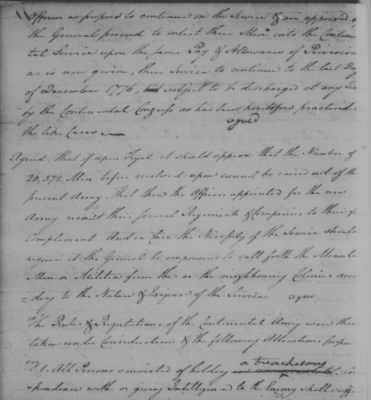 Officers as propose to continue in the Service & are approved
the General proceed to enlist their Men into the Continen
tal Service upon the same Pay & Allowance of Provisions
as is now given, their Service to continue to the last Day
of December 1776, subject to be discharged at any Time
by the Continental Congress as has been heretofore practiced
the like Cases
agreed
Agreed, that if upon Tryal it should appear that the Number of
20,372 Men before resolved upon cannot be raised out of the
present Army, that then the Officers appointed for the new
Army recruit their several Regiments & Companies to their
Complement. And in Case the Necessity of the Service should
require it the General be empowered to call forth the Minute
Men or Militia from this or the neighbouring Colonies acc
ding to the Nature & Exigence of the Service agreed
The Rules & Regulations of the Continental Army were then
taken under Consideration & the following Alterations propos
1. All Persons convicted of holding a treacherous
spondence with or giving Intelligence to the Enemy shall suff